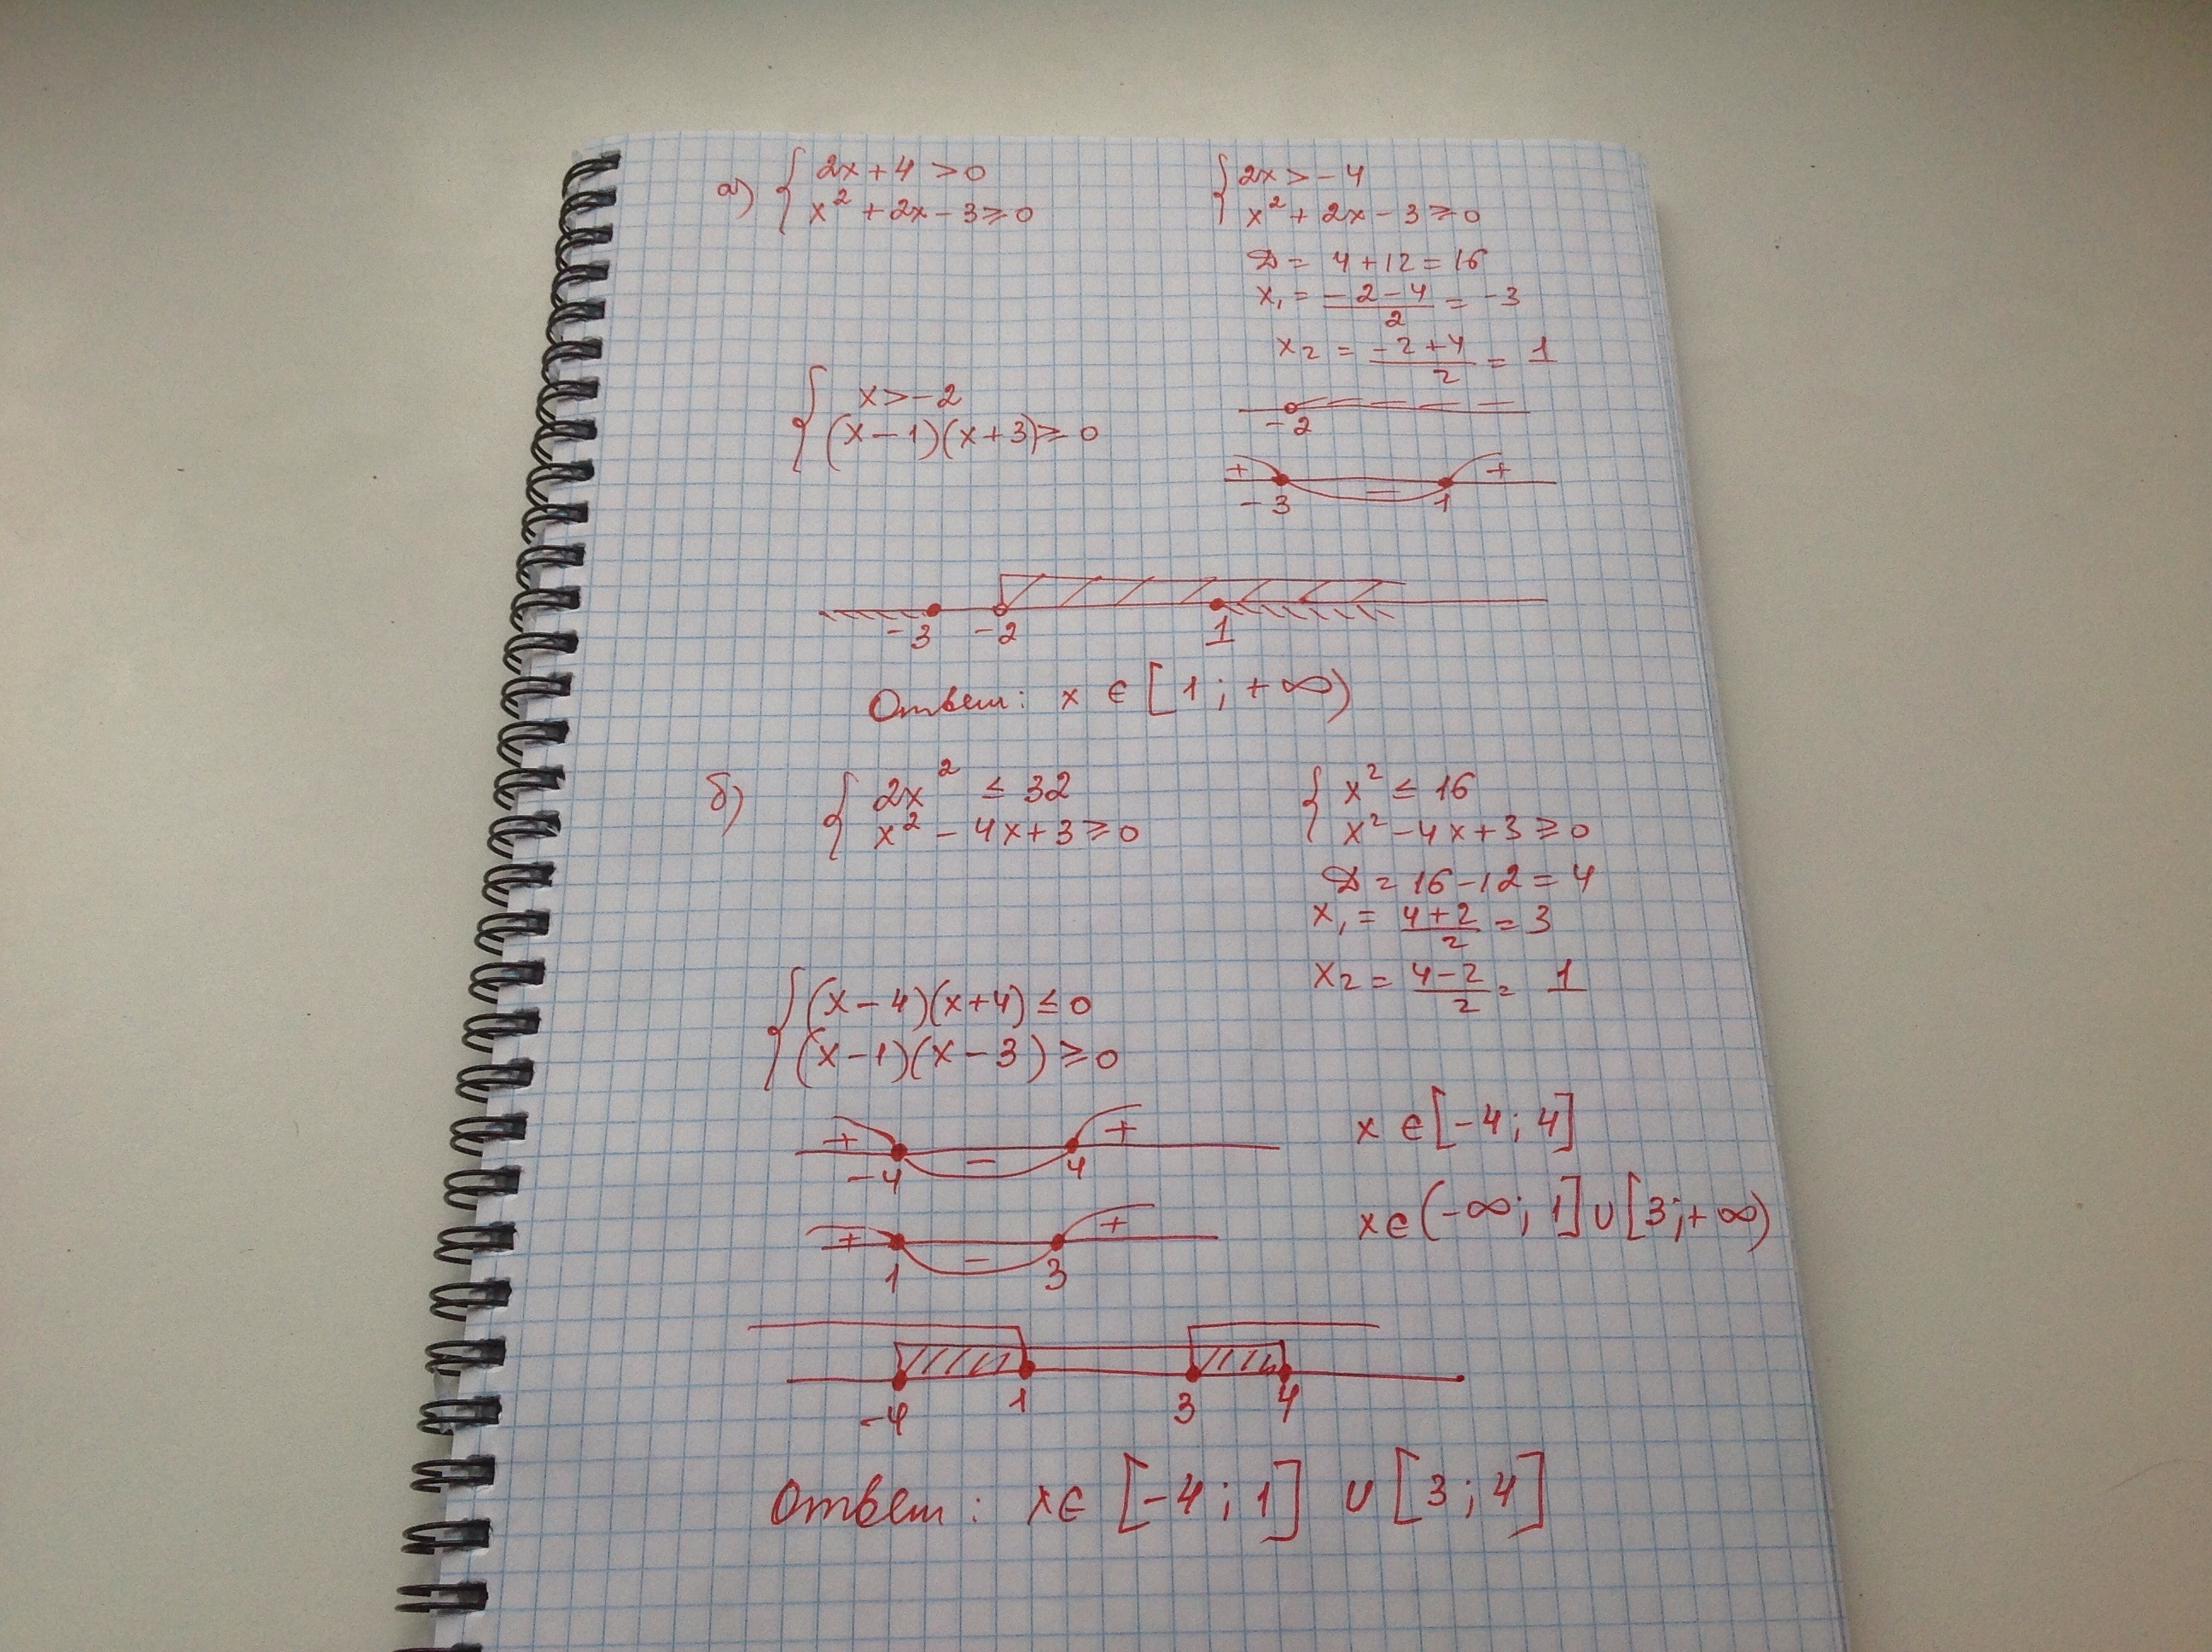 а) { 2x + 4 > 0
x² + 2x - 3 ≥ 0
{ 2x > - 4
x² + 2x - 3 ≥ 0
D = 4 + 12 = 16
x₁ = (-2-4)/2 = -3
x₂ = (-2+4)/2 = 1
{ x > -2
(x-1)(x+3) ≥ 0
-2
+ - +
-3 1
-3 -2 1
Ответ: x ∈ [1; +∞)
б) { 2x² ≤ 32
x² - 4x + 3 ≥ 0
{ x² ≤ 16
x² - 4x + 3 ≥ 0
D = 16 - 12 = 4
x₁ = (4+2)/2 = 3
x₂ = (4-2)/2 = 1
{ (x-4)(x+4) ≤ 0
(x-1)(x-3) ≥ 0
+ - +
-4 4
x ∈ [-4; 4]
+ - +
1 3
x ∈ (-∞; 1] ∪ [3; +∞)
-4 1 3 4
Ответ: x ∈ [-4; 1] ∪ [3; 4]